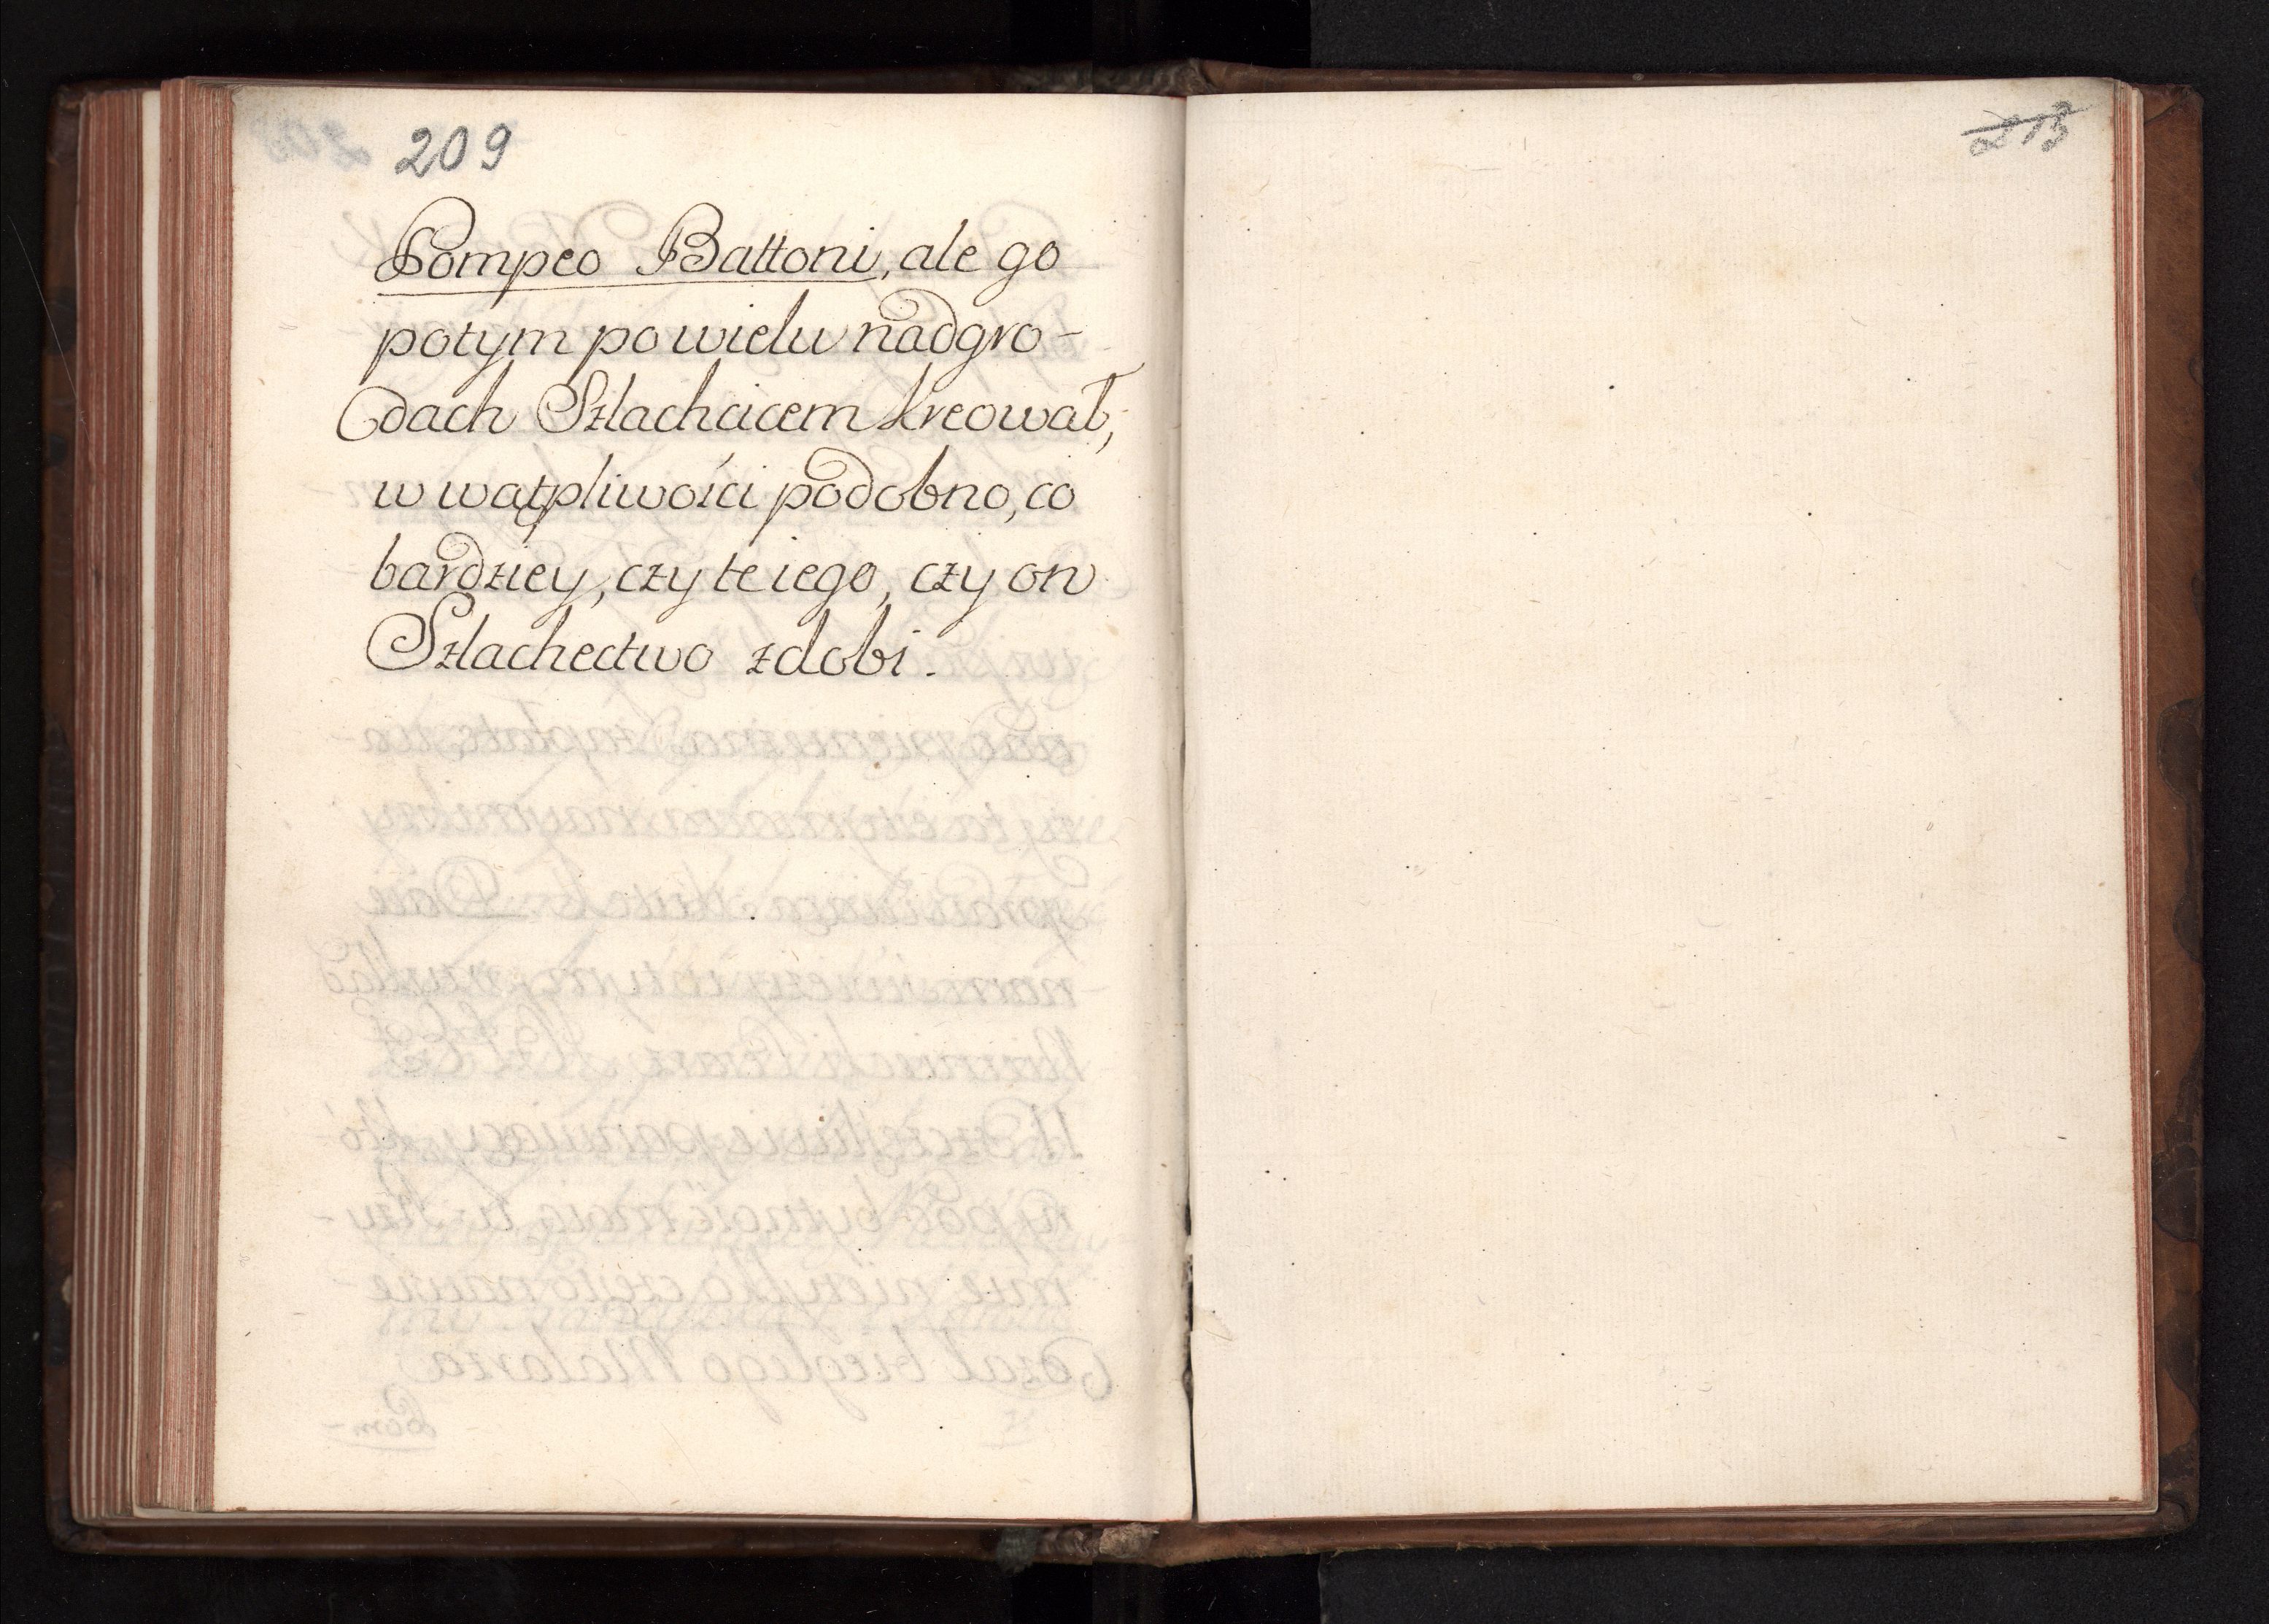 209
Pompeo Battoni, ale go
potym po wielu nadgro-
dach Szlachcicem kreował,
w wątpliwości podobno, co
bardziey, czy te iego, czy on
Szlachectwo zdobi.
213